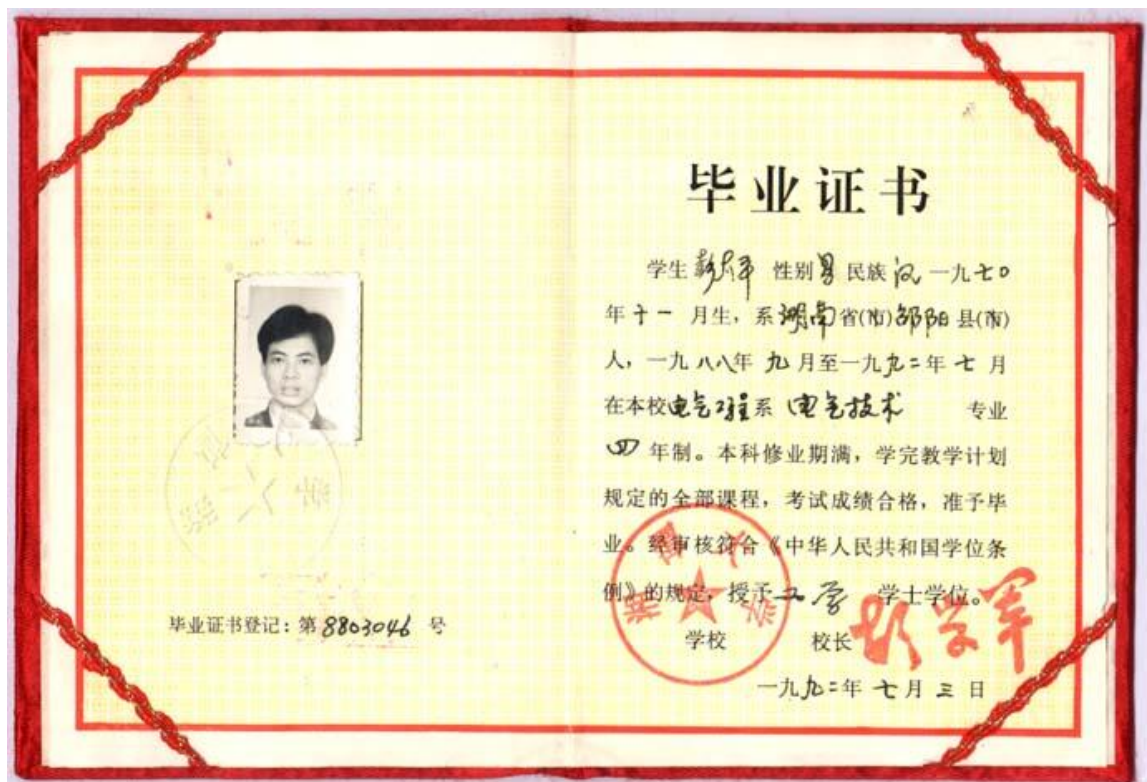 毕业证书
学生 性别男民族汉一九七〇
年十一月生,系湖南省(市)邵阳县(市)
人,一九八八年九月至一九九二年七月
在本校电气工程系电气技术专业
四年制。本科修业期满,学完教学计划
规定的全部课程,考试成绩合格,准予毕
业。经审核符合《中华人民共和国学位条
例》的规定,授予工学学士学位。
学校 校长
一九九二年七月三日
毕业证书登记:第8803046号